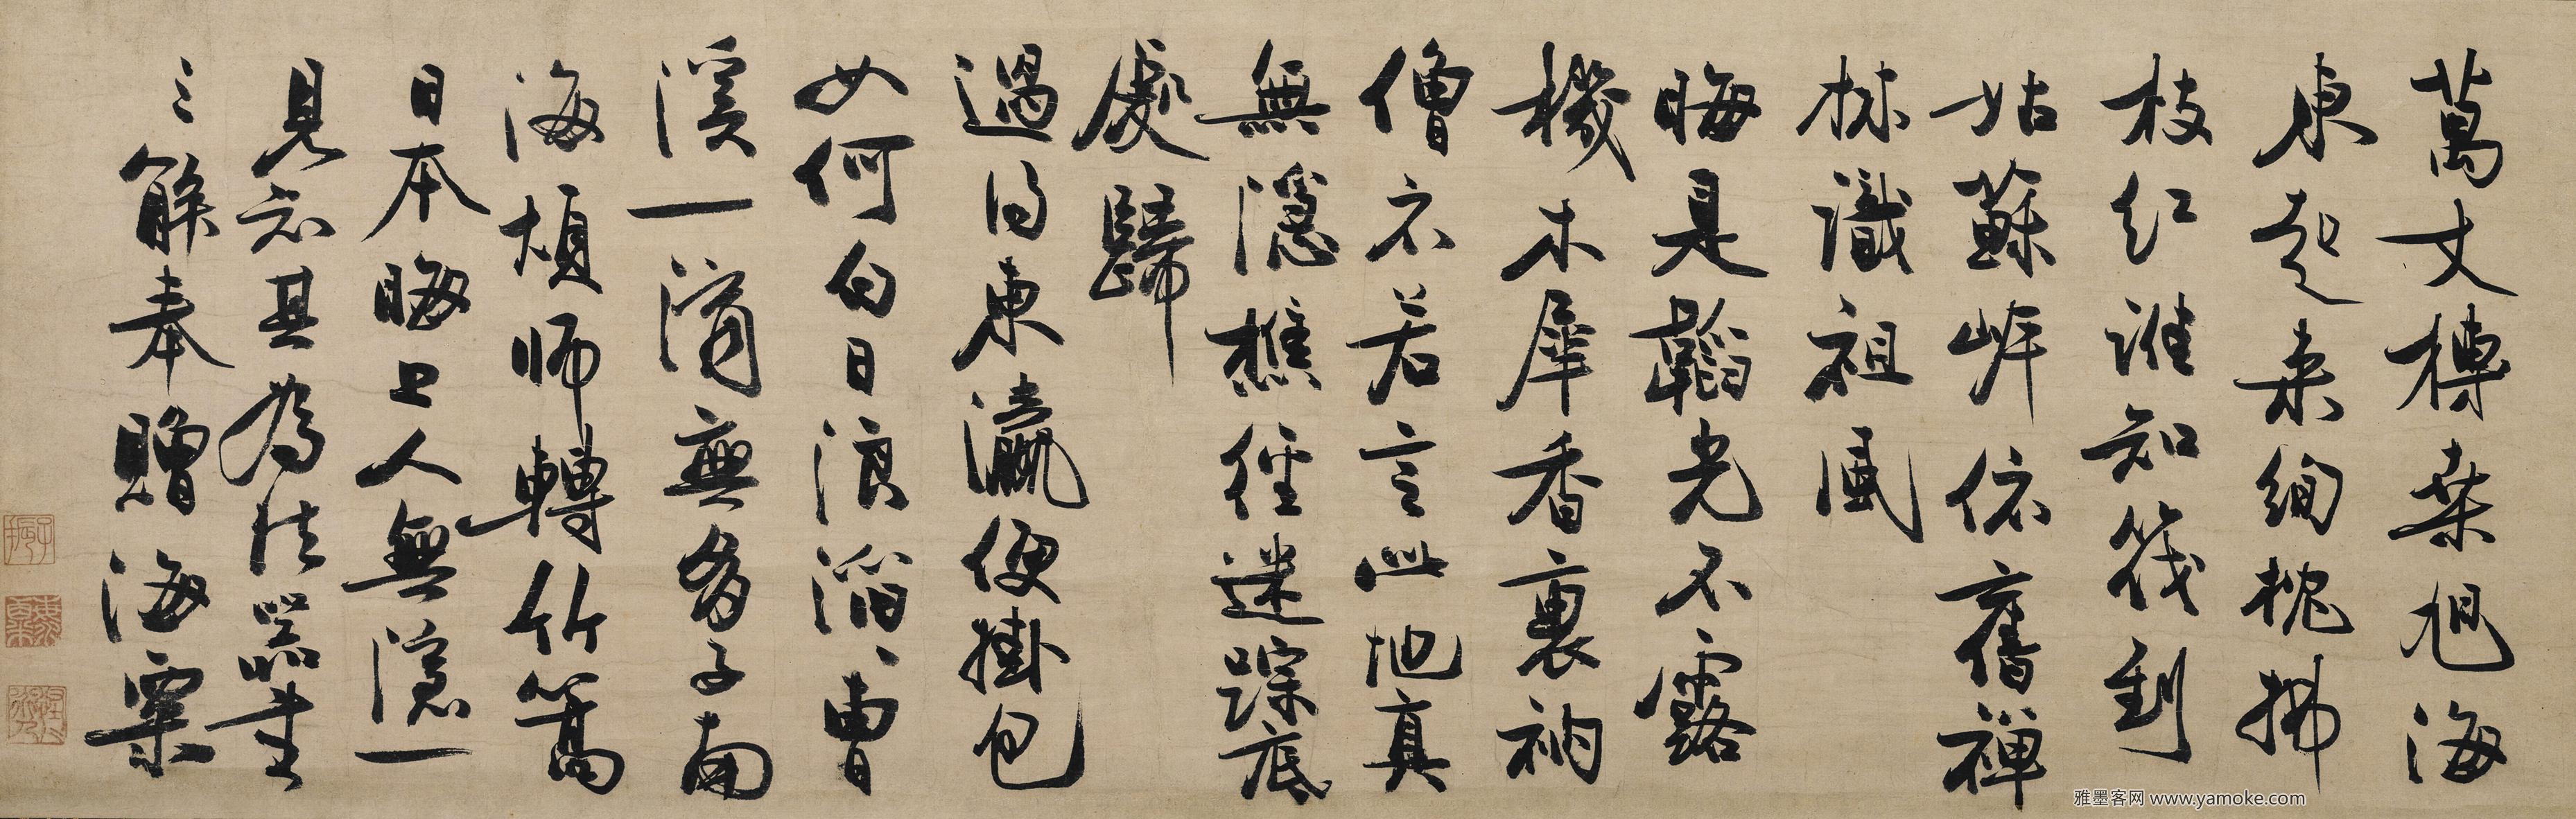 萬丈榑桒旭海
東起来絢枕拂
枝紅誰知筏到
姑蘇岸依舊禪
林識祖風
晦是韜光不露
機木犀香裏衲
僧衣若言此地真
無隱樵徑迷踪底
處歸
過得東瀛便掛包
如何白日浪滔、曹
溪一滴無多子南
海煩師轉竹篙
日本晦上人無隱一
見知其為法器書
三解奉贈海粟
雅墨客网 www.yamoke.com